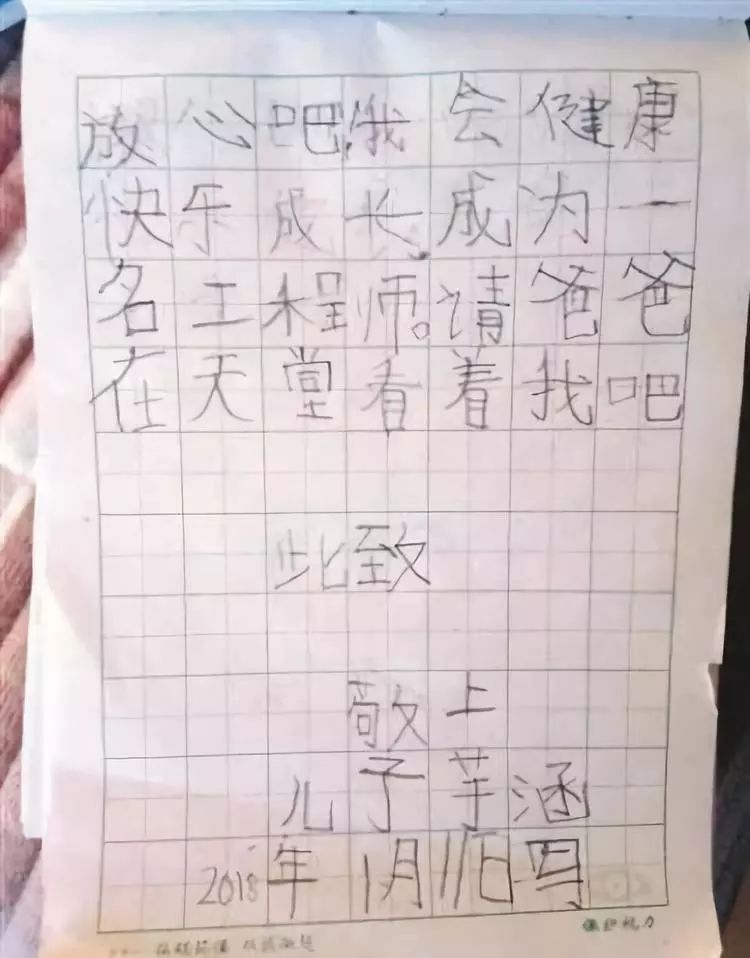 放心吧,我会健康
快乐成长,成为一
名工程师。请爸爸
在天堂看着我吧
此致
敬上
儿子芋涵
2018年1月11日写